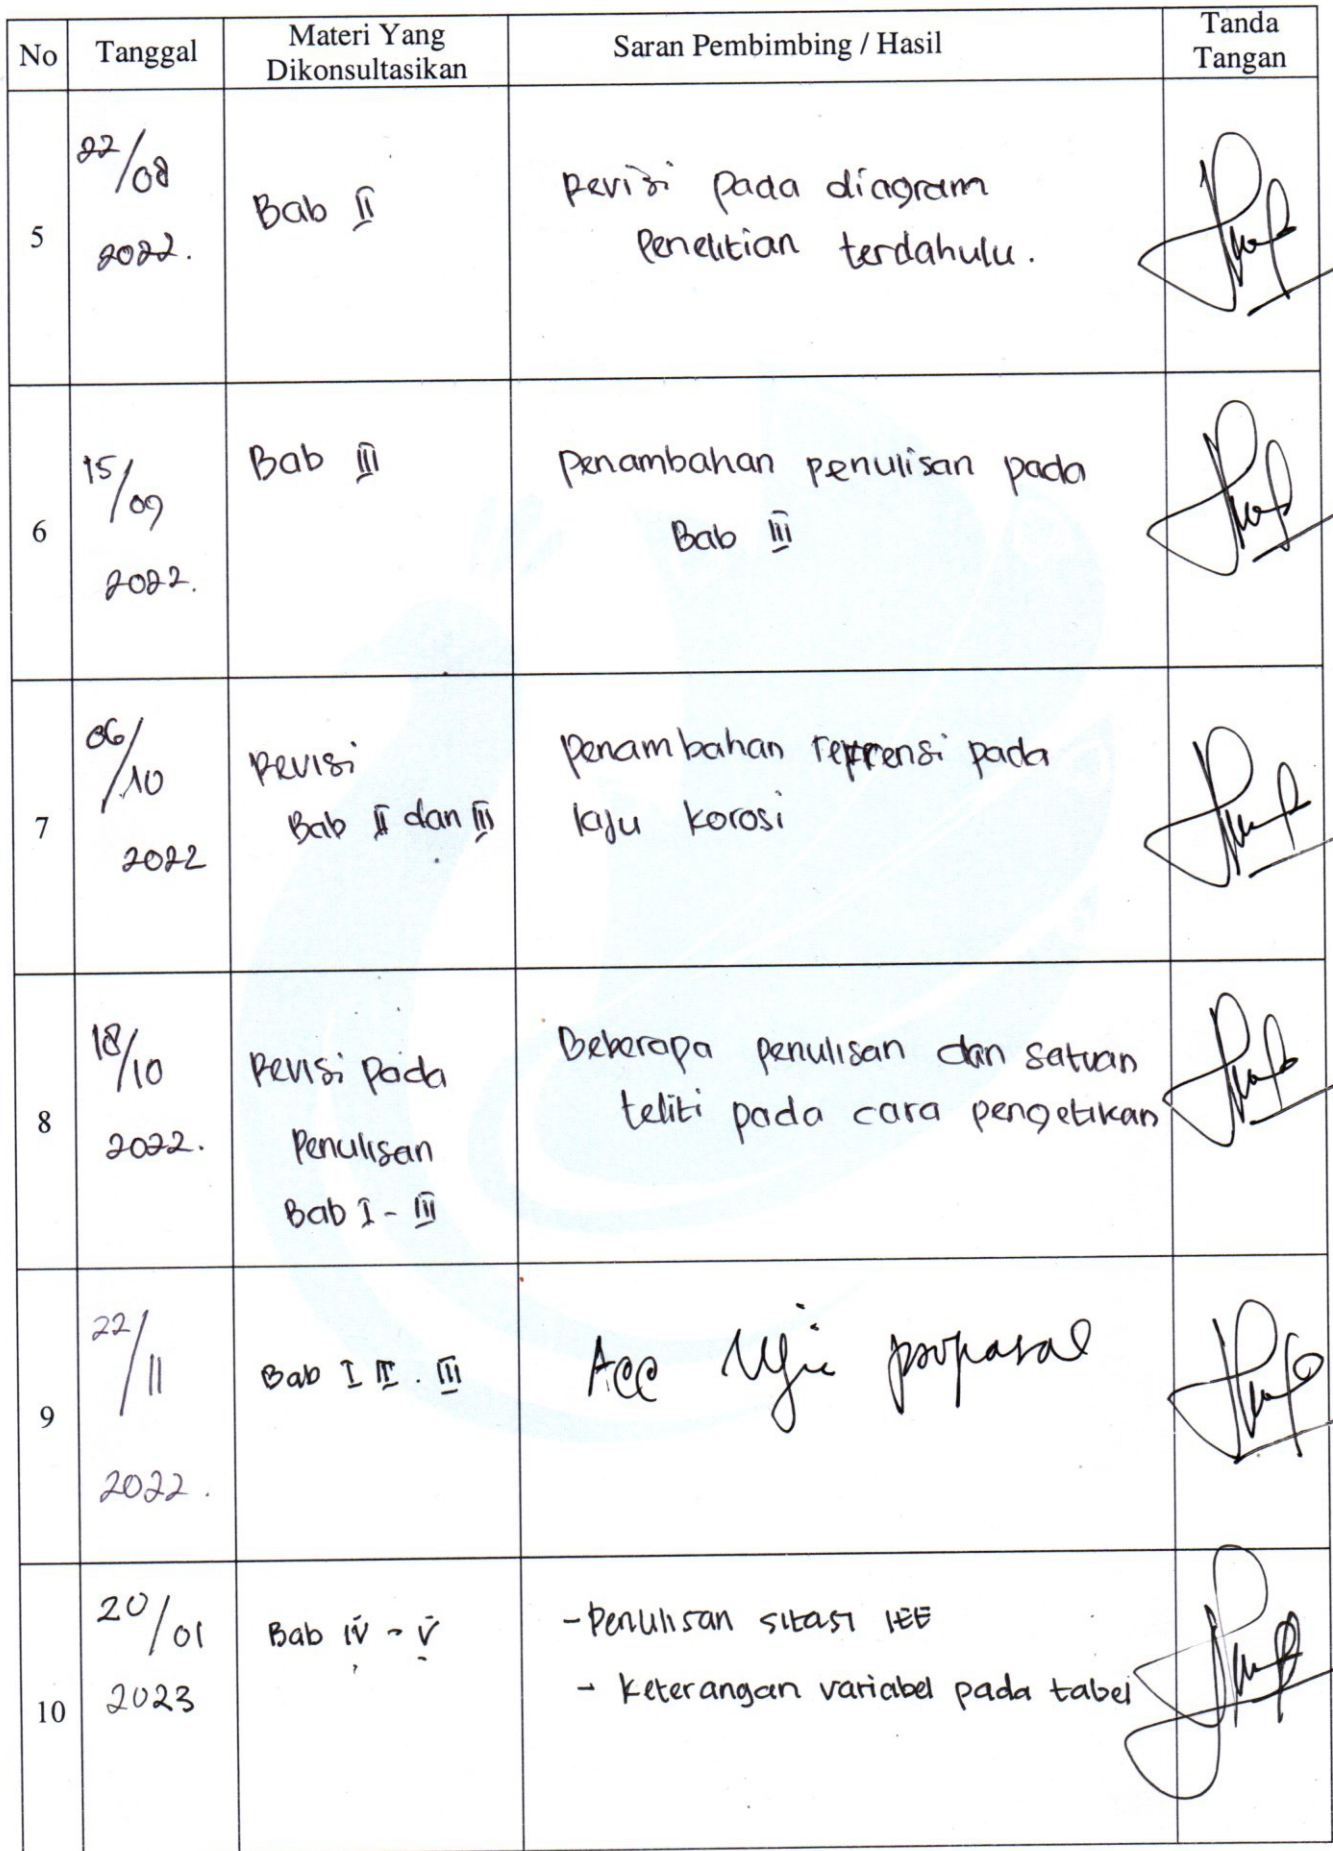 No Tanggal Materi Yang Dikonsultasikan Saran Pembimbing / Hasil Tanda Tangan
5
22/08
2022.
Bab II
Revisi pada diagram
Penelitian terdahulu.
6
15/09
2022.
Bab III
Penambahan penulisan pada
Bab III
7
06/10
2022
Revisi
Bab II dan III
Penambahan referensi pada
laju korosi
8
18/10
2022.
Revisi pada
Penulisan
Bab I - III
Beberapa penulisan dan satuan
teliti pada cara pengetikan
9
22/11
2022.
Bab I II . III
Acc Uji proposal
10
20/01
2023
Bab IV - V
- Penulisan sitasi IEE
- Keterangan variabel pada tabel